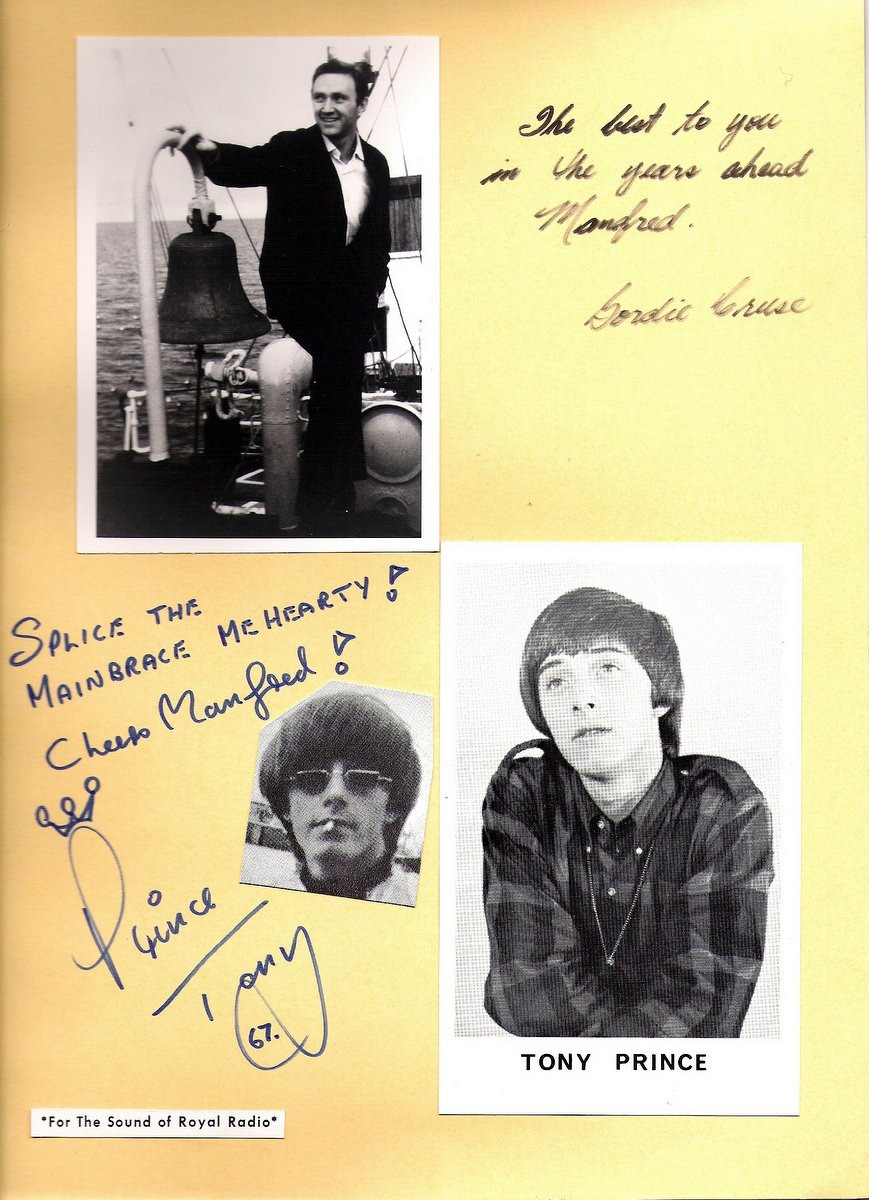 The best to you
in the years ahead
Manfred.
Gordie Cruse
SPLICE THE
MAINBRACE ME HEARTY!
Cheers Manfred!
Prince
Tony
67.
TONY PRINCE
*For The Sound of Royal Radio*